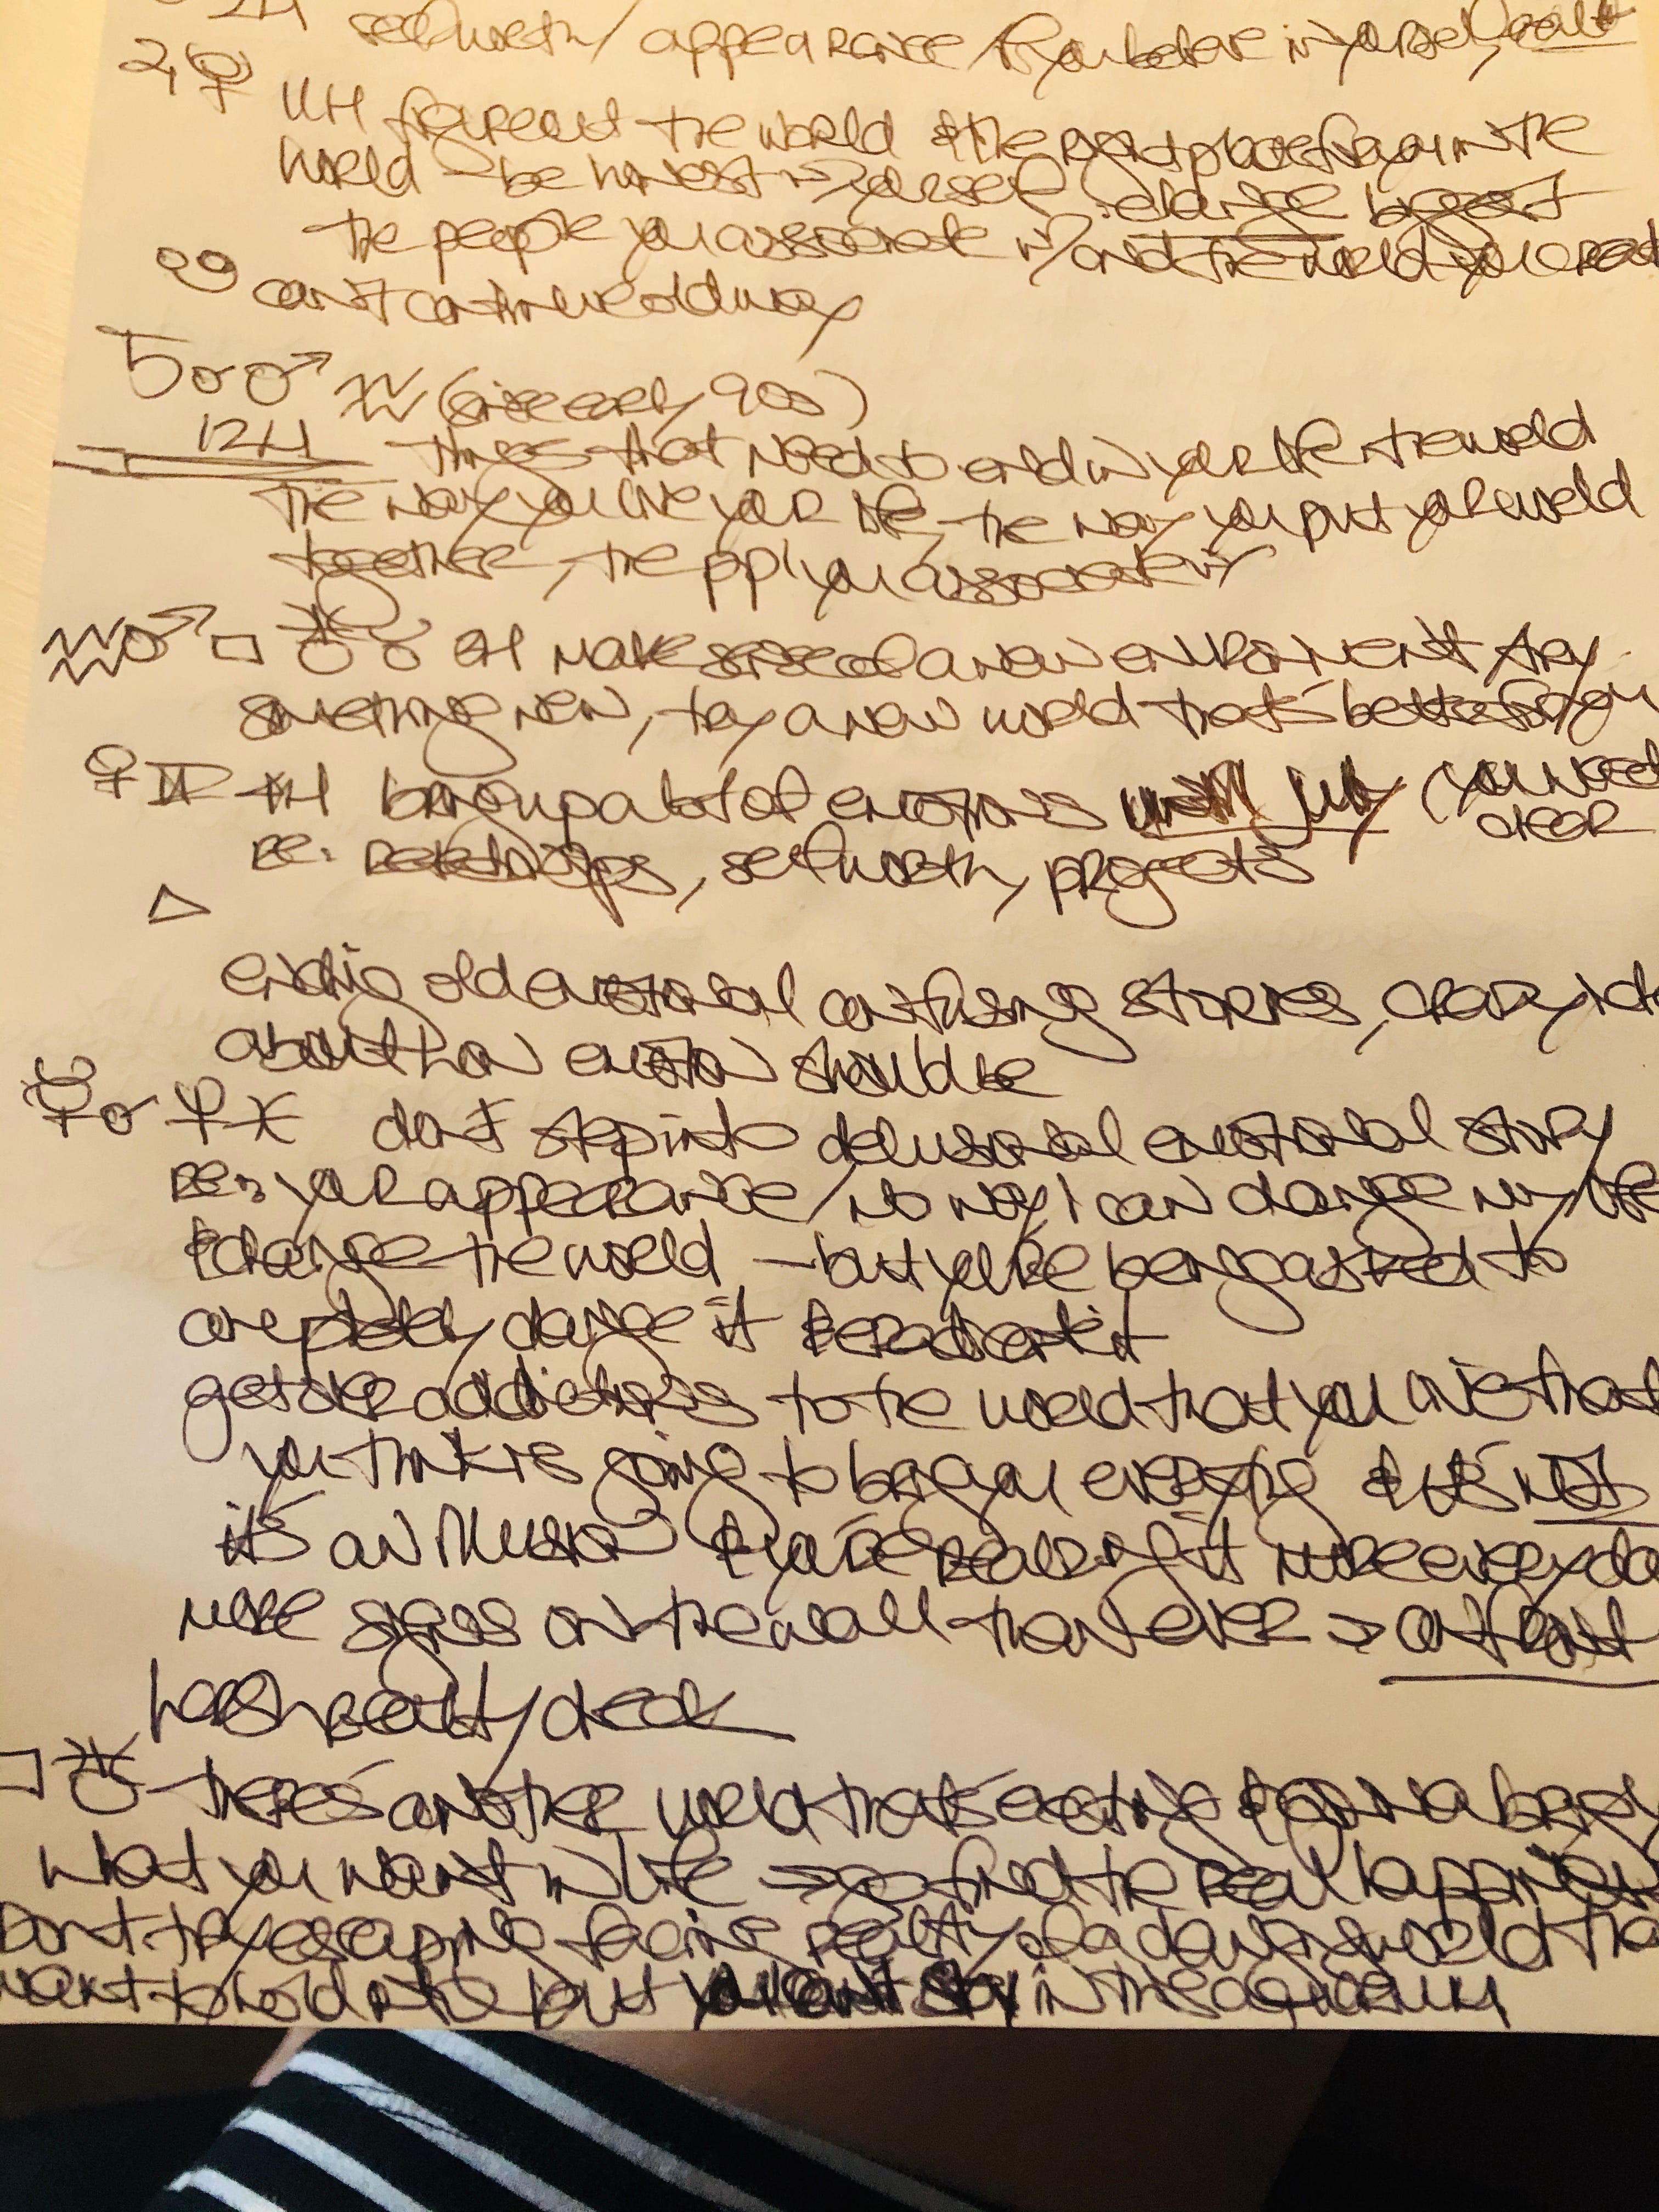 self worth / appearance / if you believe in yourself,
♀ 11H frequent the world & the right place for you in the
world - be honest w/ yourself, change biggest
the people you associate w/ and the world you create
can't continue old way
♂ ♒ (since early 90s)
12H things that need to end in your life, the world
the way you live your life, the way you put your world
together, the ppl you associate w/
♒ ♂ □ ♉ make sense of a new environment try
something new, try a new world that's better for you
♀ ♊ 4H bring up a lot of emotions until July (you need
re: relationships, self worth, projects clear
△
ending old emotional confusing stories, crazy
about how emotion should be
☿ ☌ ♆ ♓ don't step into delusional emotional story
re: your appearance / no way I can change my life
& change the world - but you're being asked to
completely change it & eradicate it
get over addictions to the world that you live that
you think is going to bring you everything & it's NOT
it's an illusion & you're realizing it more everyday
more signs on the wall than ever → confront
harsh reality check
□ there's another world that's exciting & gonna bring
what you want in life → go find the real happiness
Don't try escaping facing reality of a changing world
want to hold onto but you can't stay in the aquarium